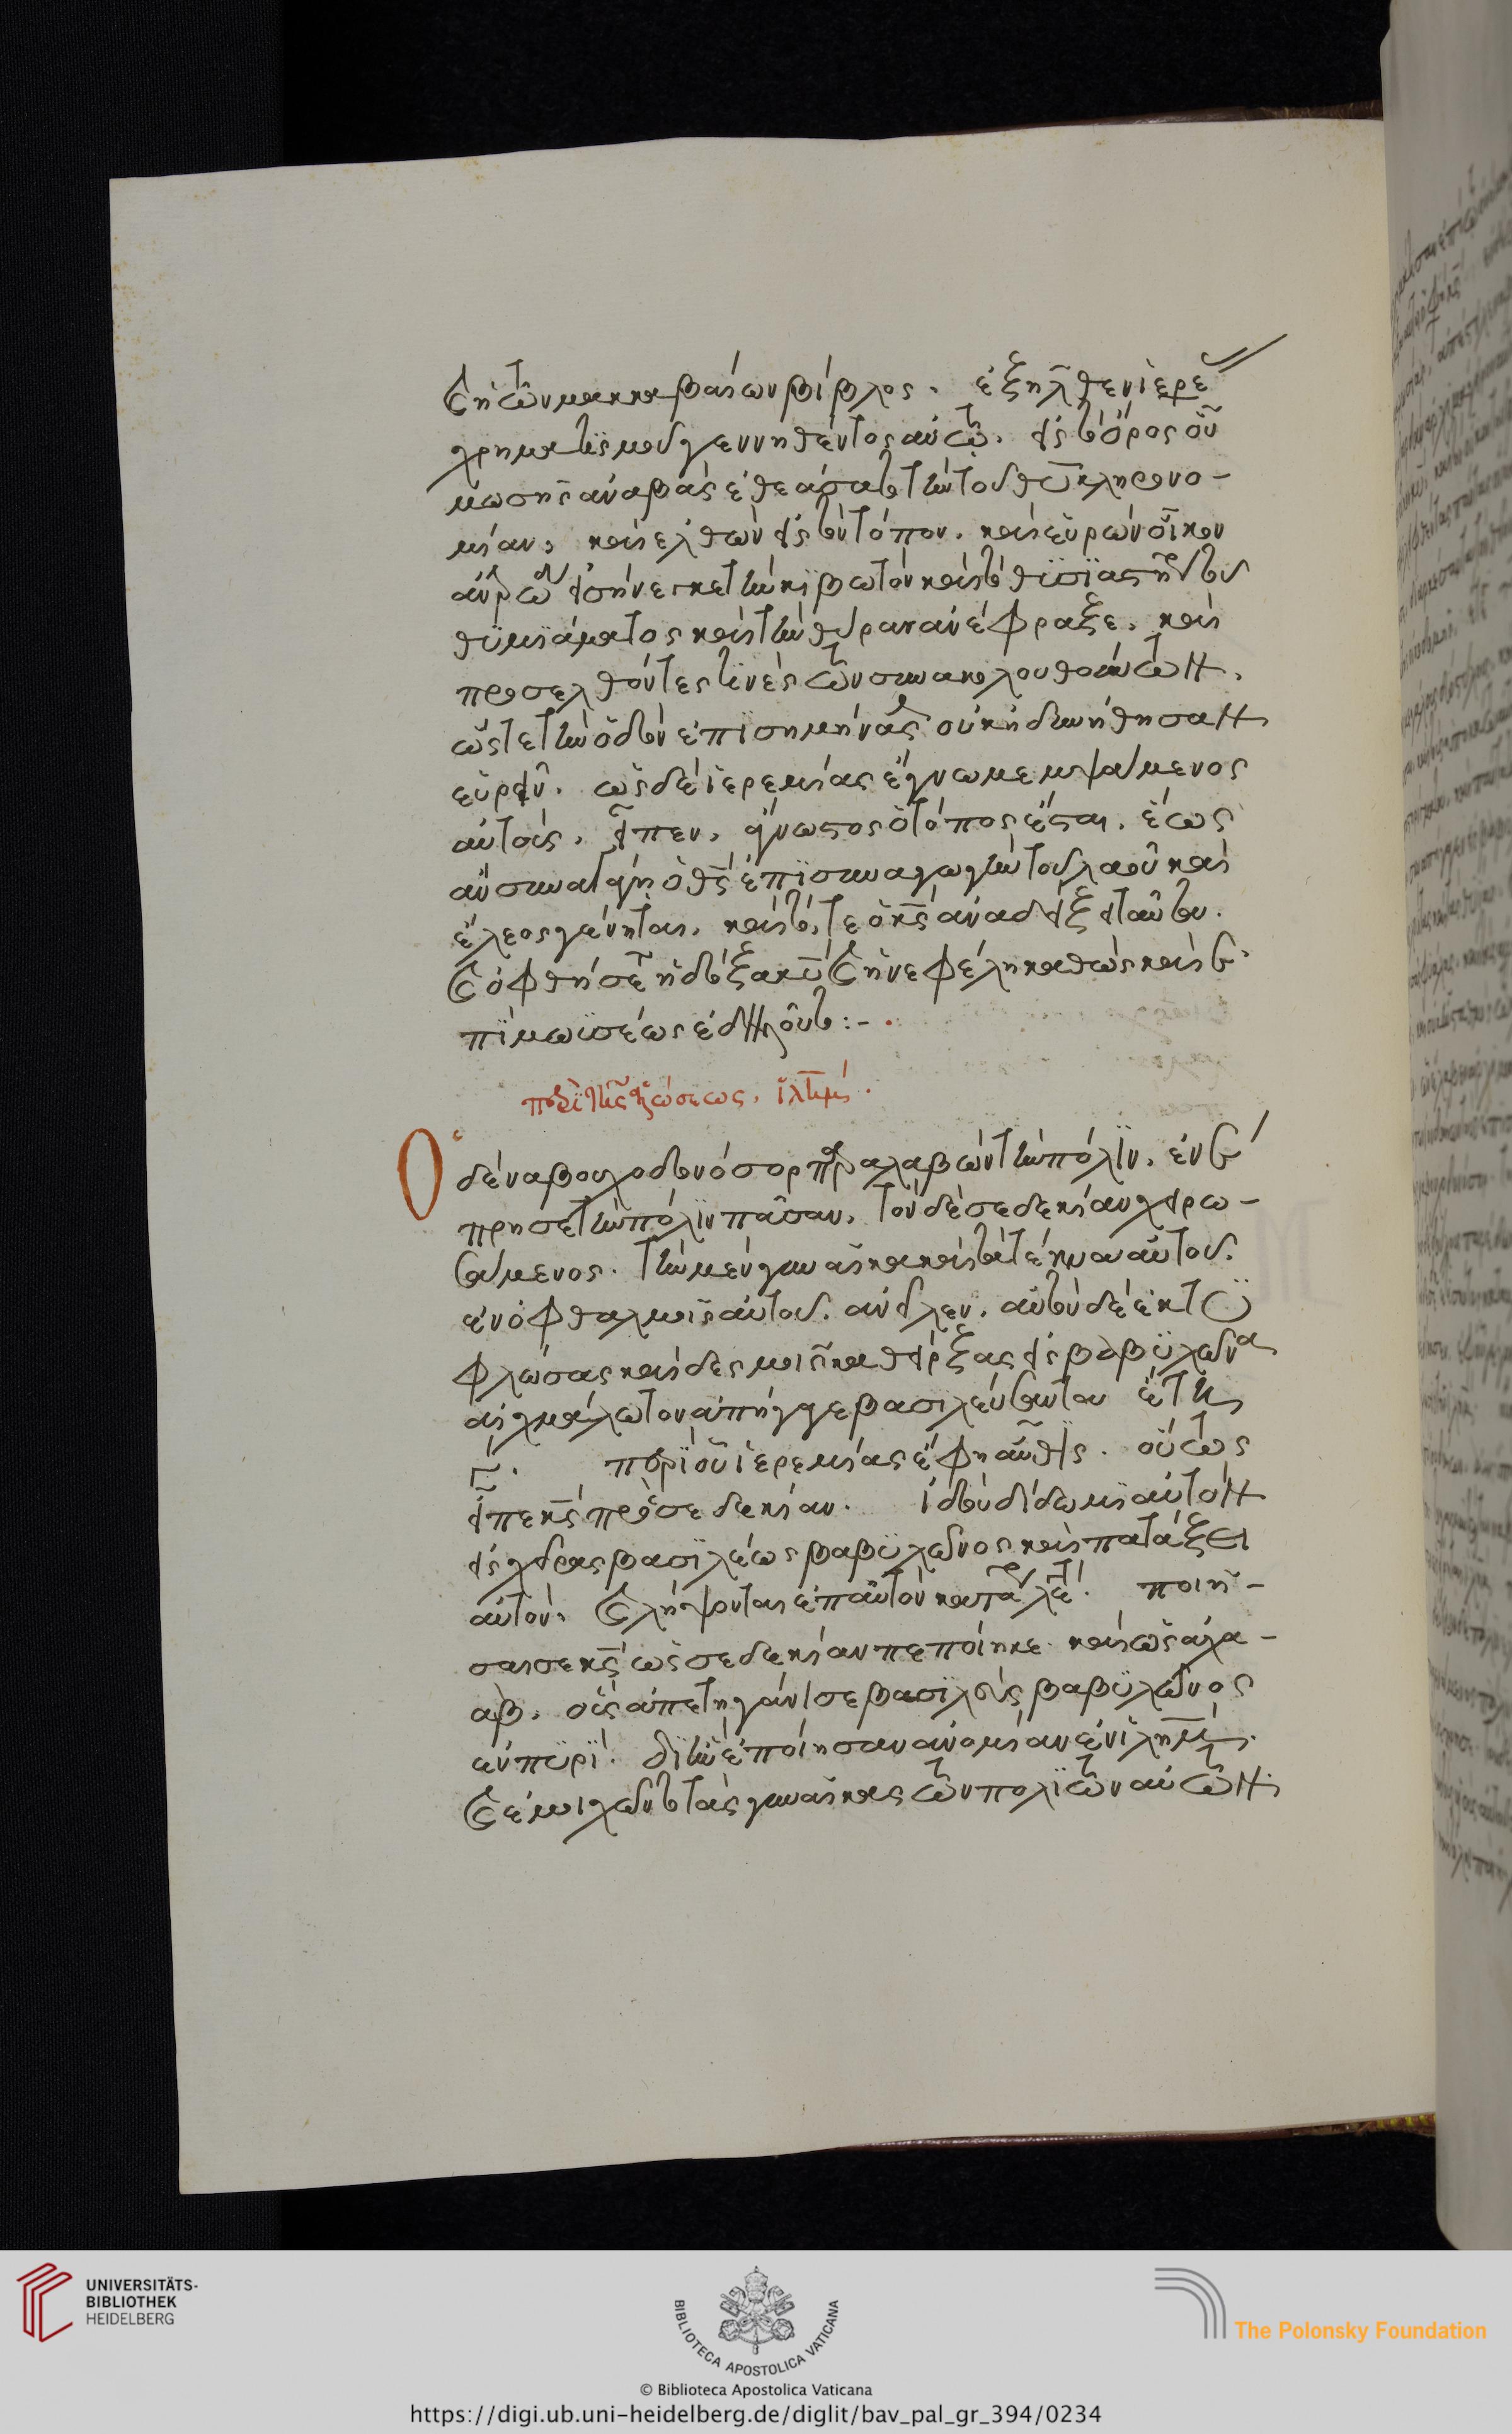 καὶ ἡ τῶν μακκαβαίων βίβλος. ἐξῆλθεν ἱερε
χρηματισμοῦ γεννηθέντος αὐτῷ. εἰς τὸ ὄρος οὗ
μωσῆς ἀναβὰς ἐθεάσατο τὴν τοῦ θῦ κληρονο-
μίαν, καὶ ἐλθὼν εἰς τὸν τόπον. καὶ εὑρὼν οἶκον
εἰσήνεγκε τὴν κιβωτὸν καὶ τὸ θυσιαστήριον τοῦ
θυμιάματος καὶ τὴν θύραν ἀνέφραξε. καὶ
προσελθόντες τινὲς τῶν συνακολουθούντων.
ὥστε τὴν ὁδὸν ἐπισημήνασθαι οὐκ ἠδυνήθησαν
εὑρεῖν. ὡς δὲ ἱερεμίας ἔγνω μεμψάμενος
αὐτοῖς. εἶπεν. ἄγνωστος ὁ τόπος ἔσται. ἕως
ἂν συναγάγῃ ὁ θς ἐπισυναγωγὴν τοῦ λαοῦ καὶ
ἔλεος γένηται. καὶ τότε ὁ κς ἀναδείξει ταῦτα.
καὶ ὀφθήσεται ἡ δόξα κυ καὶ ἡ νεφέλη καθὼς καὶ ἐ
πὶ μωϋσέως ἐδηλοῦτο :-
περὶ τῆς ἁλώσεως. ἱλημ.
Ὁ δὲ ναβουχοδονόσορ παραλαβὼν τὴν πόλιν. ἐνέ
πρησε τὴν πόλιν πᾶσαν. τὸν δὲ σεδεκίαν χειρω-
σάμενος. τὴν μὲν γυναῖκα καὶ τὰ τέκνα αὐτοῦ.
ἐν ὀφθαλμοῖς αὐτοῦ. ἀνεῖλεν. αὐτὸν δὲ ἐκτυ
φλώσας καὶ δεσμοῖς καθείρξας εἰς βαβυλῶνα
αἰχμάλωτον ἀπήγαγε βασιλεύσαντα ἔτη
περὶ οὗ ἱερεμίας ἔφη αὖθις. οὕτως
εἶπε κς πρὸς σεδεκίαν. ἰδοὺ δίδωμι αὐτὸν
εἰς χεῖρας βασιλέως βαβυλῶνος καὶ πατάξει
αὐτόν. καὶ λήψονται ἐπ αὐτὸν κατάραν λέγοντες. ποιή-
σαι σε κς ὡς σεδεκίαν πεποίηκε. καὶ ὡς ἀχα-
άβ. οὓς ἀπετηγάνισε βασιλεὺς βαβυλῶνος
ἐν πυρί. δι ἣν ἐποίησαν ἀνομίαν ἐν ἱλημ.
καὶ ἐμοιχῶντο τὰς γυναῖκας τῶν πολιτῶν αὐτῶν.
UNIVERSITÄTS-
BIBLIOTHEK
HEIDELBERG
BIBLIOTECA APOSTOLICA VATICANA
The Polonsky Foundation
© Biblioteca Apostolica Vaticana
https://digi.ub.uni-heidelberg.de/diglit/bav_pal_gr_394/0234